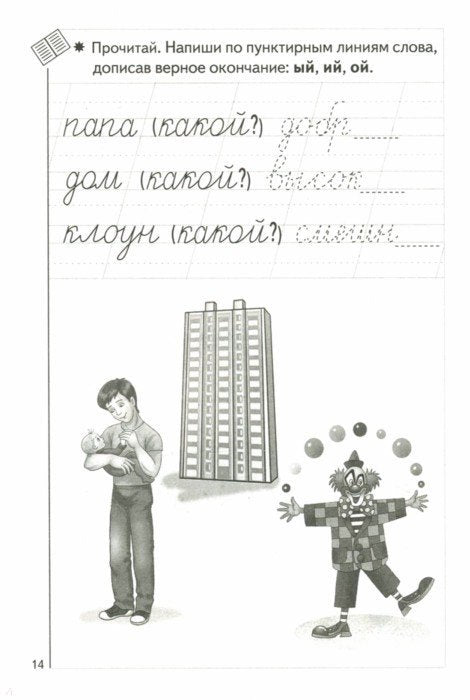 ✷ Прочитай. Напиши по пунктирным линиям слова,
дописав верное окончание: ый, ий, ой.
папа (какой?) добр___
дом (какой?) высок___
клоун (какой?) смешн___
14